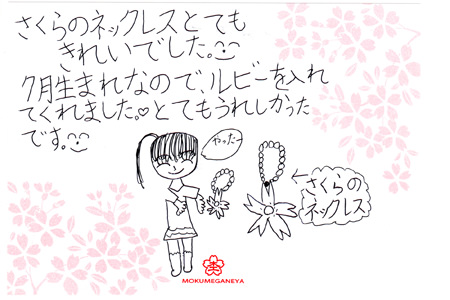 さくらのネックレスとても
きれいでした。
7月生まれなので、ルビーを入れ
てくれました。♡とてもうれしかった
です。
やったー
さくらの
ネックレス
MOKUMEGANEYA